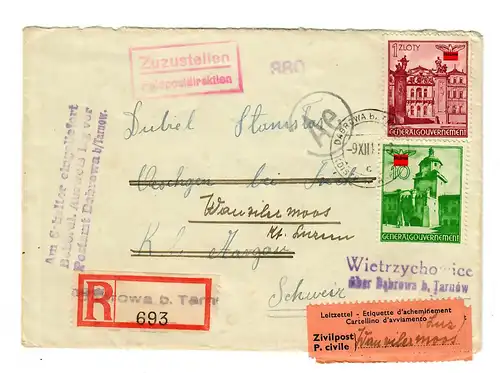 Zuzustellen
Feldpostdirektion
880
1 ZLOTY
GENERALGOUVERNEMENT
10
GENERALGOUVERNEMENT
DĄBROWA b. TA
-9XII
c
Am Schalter eingeliefert
vor
Postamt Dabrowa b/Tarnow.
Dubiel Stanislaw
Oeschgen bei
Wauwilermoos
Kt. Luzern
Kt. Aargau
Schweiz
Wietrzychowice
über Dąbrowa b. Tarnów
R
Dąbrowa b. Tarn
693
Leitzettel - Etiquette d'acheminement
Cartellino d'avviamento
Zivilpost
P. civile
Wauwilermoos